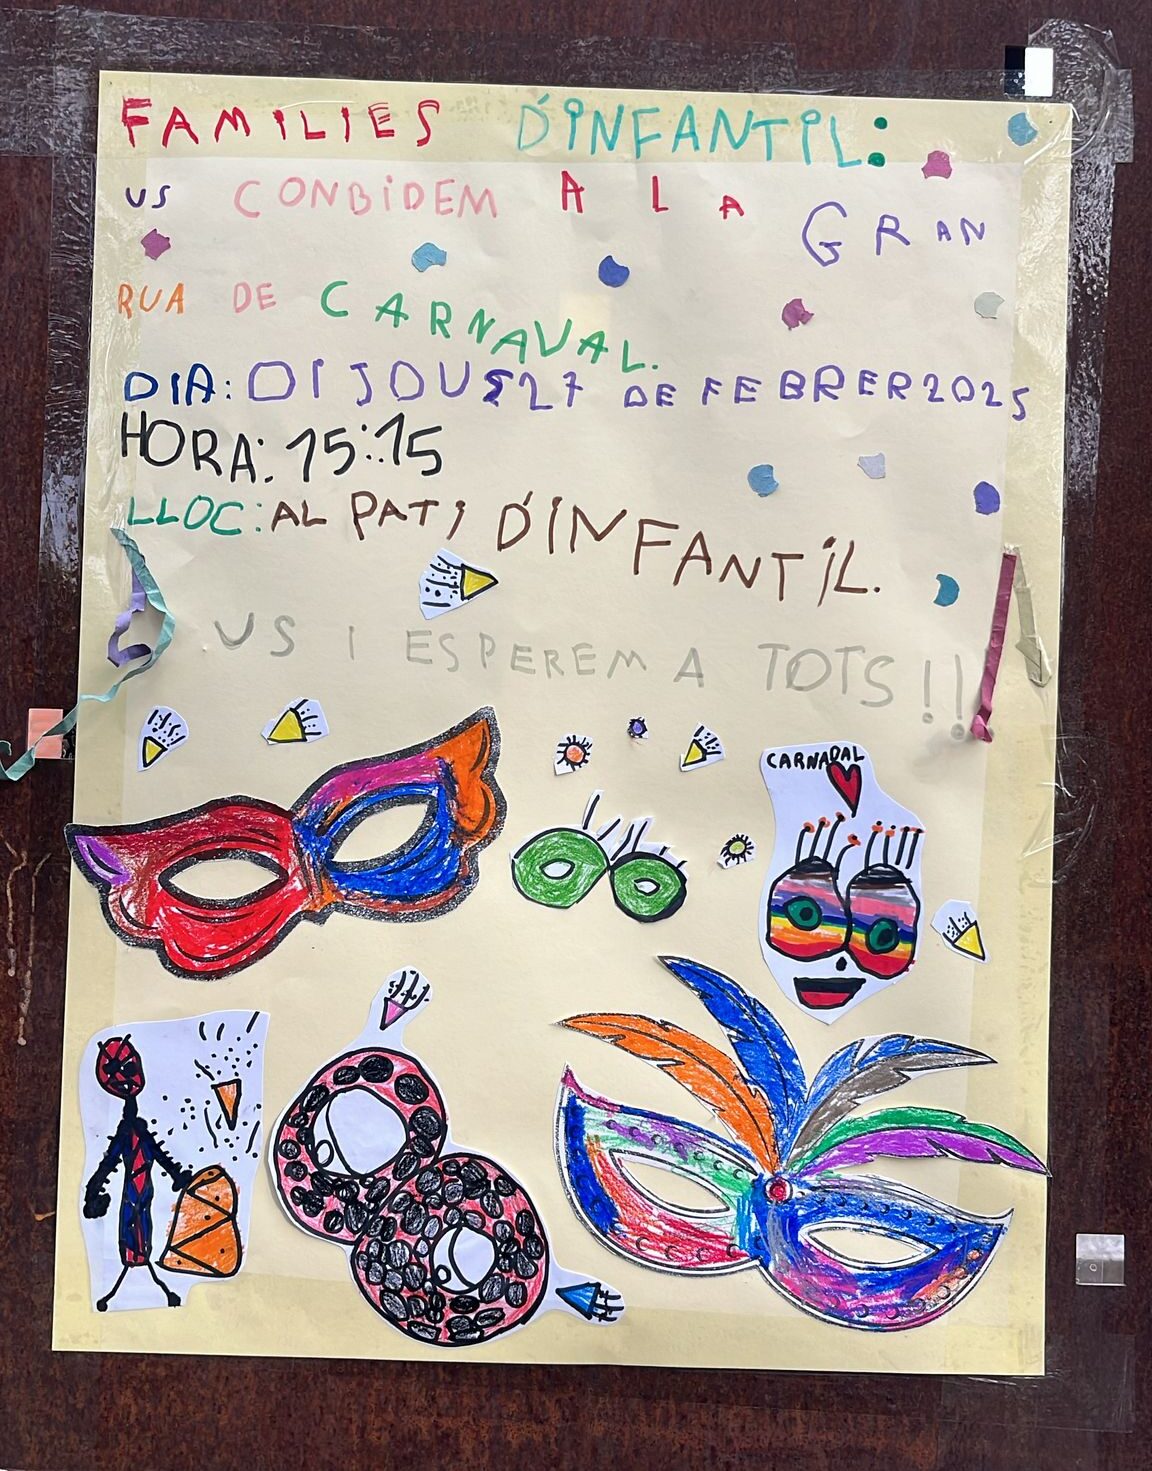 FAMILIES D'INFANTIL:
US CONBIDEM A LA GRAN
RUA DE CARNAVAL.
DIA: DIJOUS 27 DE FEBRER 2025
HORA: 15:15
LLOC: AL PATI D'INFANTIL.
US I ESPEREM A TOTS!!
CARNAVAL